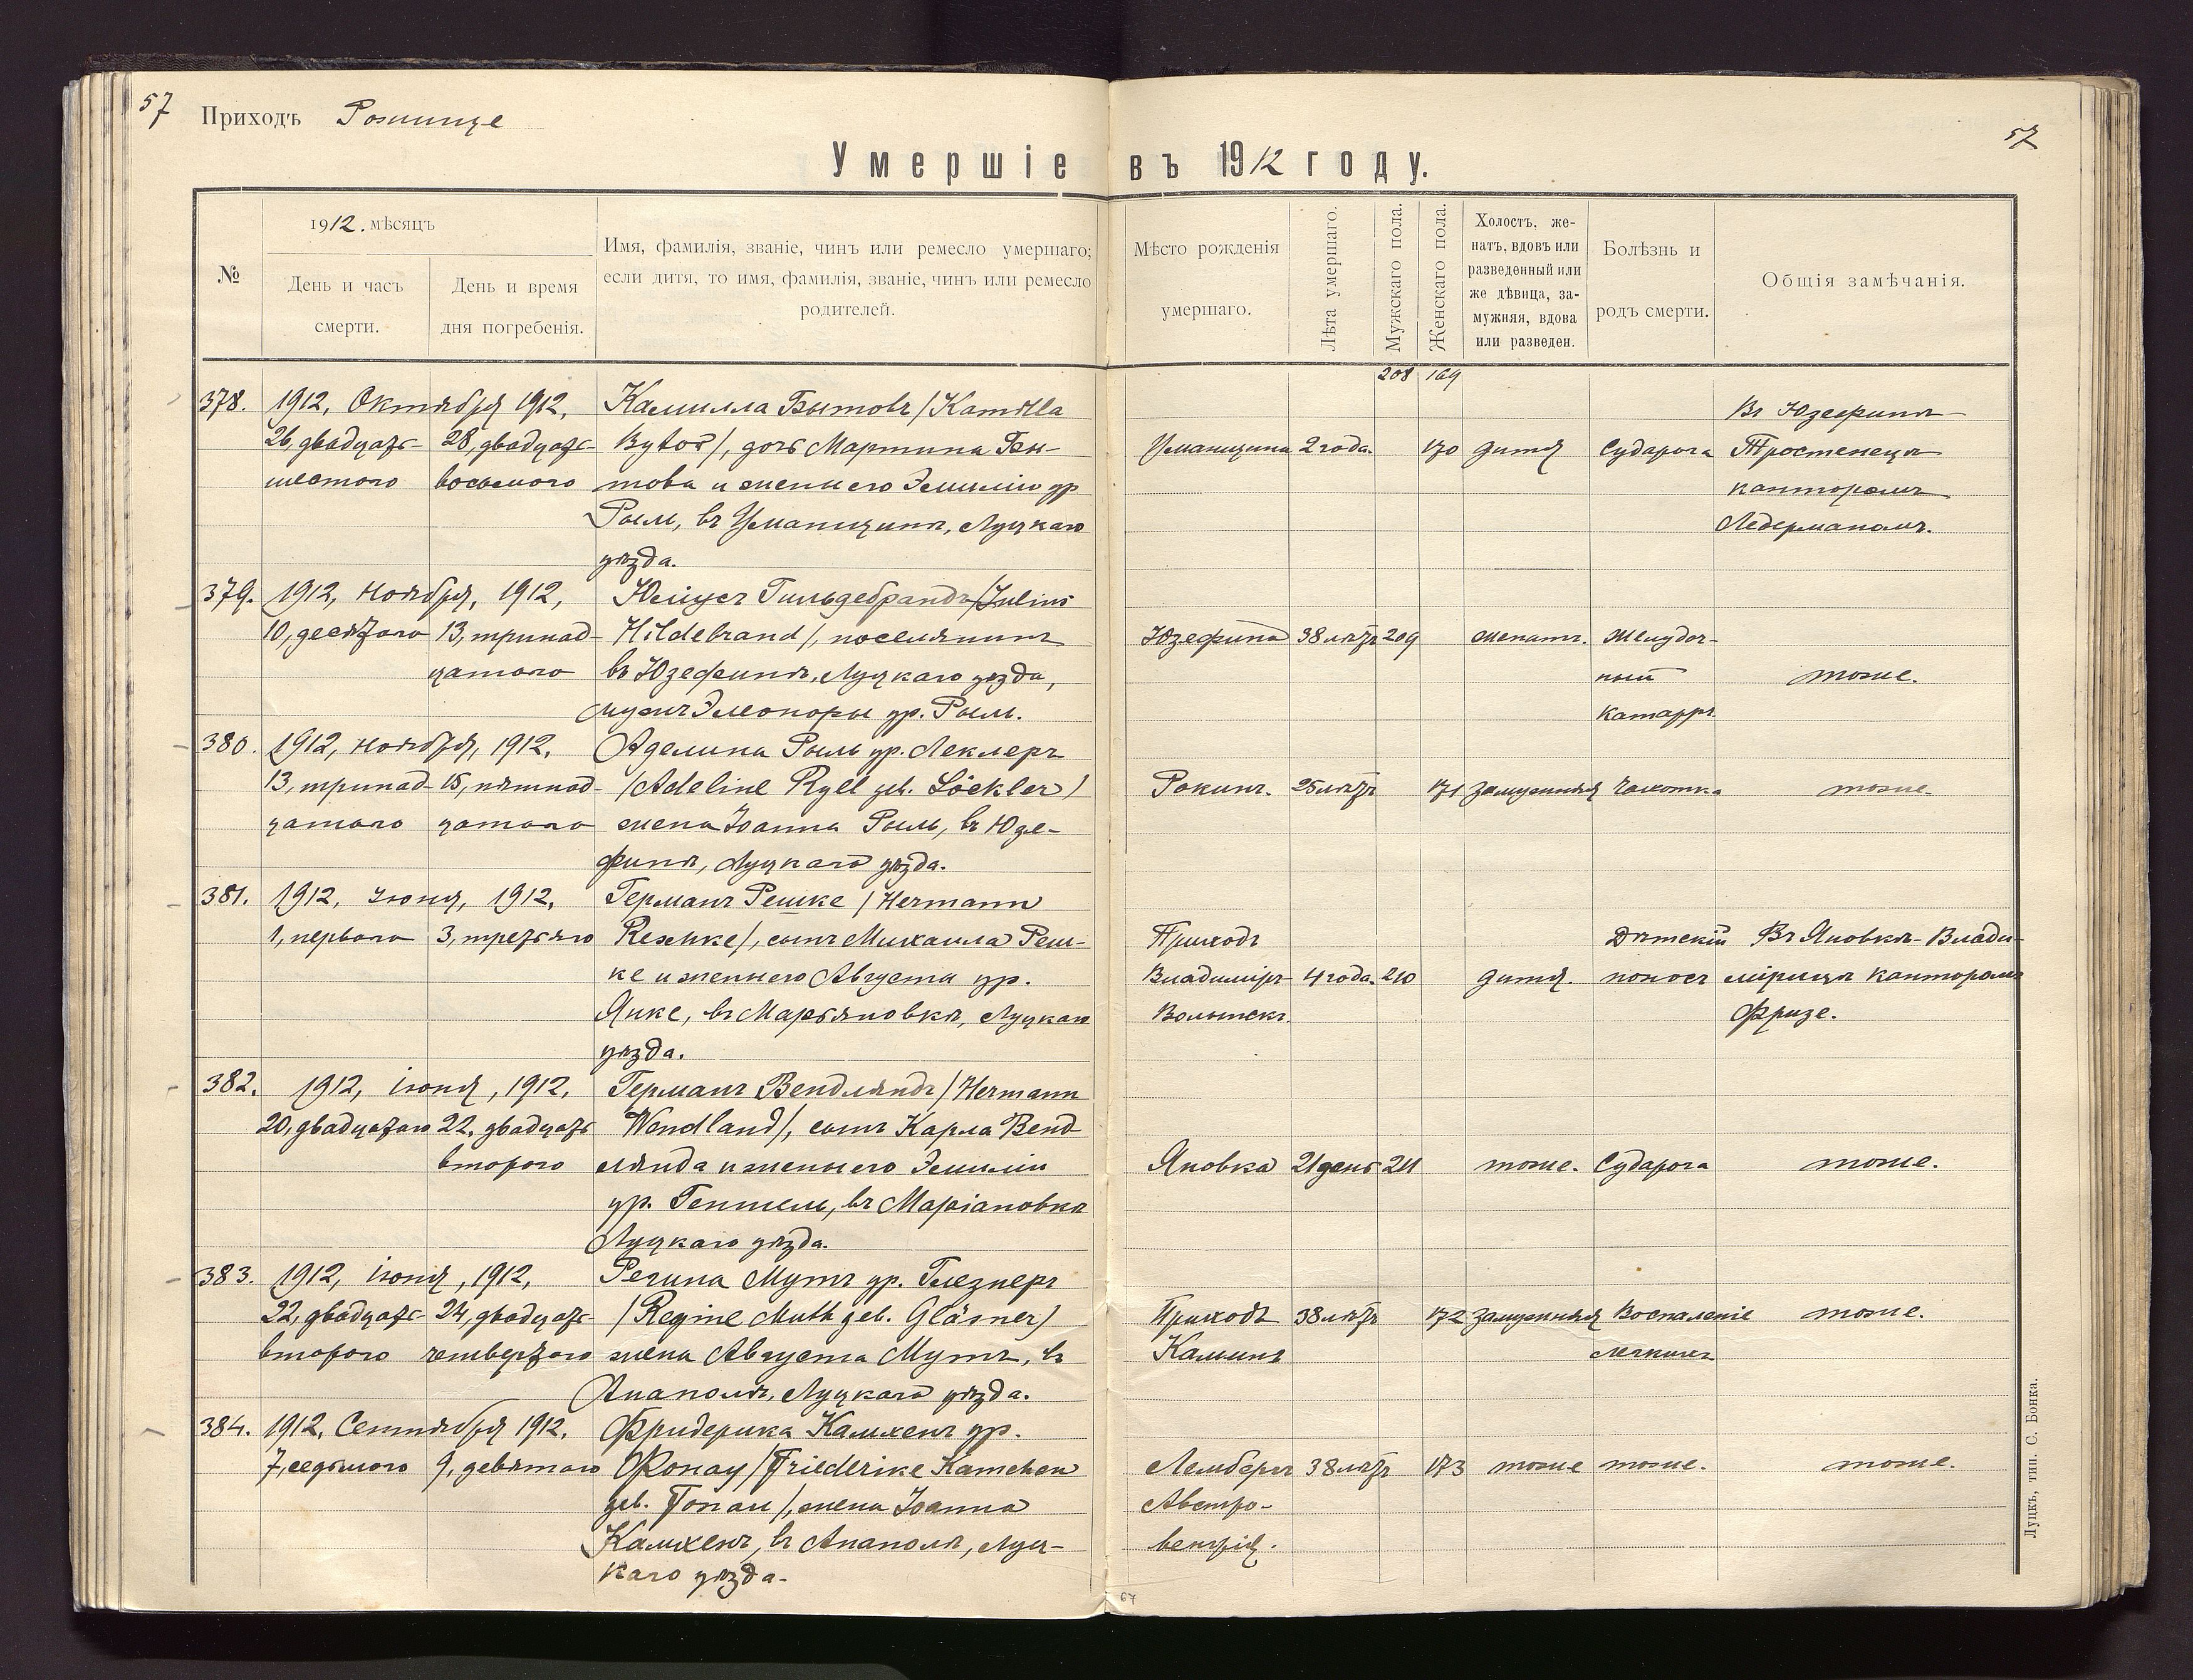 57 Приходъ Рожище
57
Умершіе въ 1912 году.
№
1912. мѣсяцъ
День и часъ
смерти.
День и время
дня погребенія.
Имя, фамилія, званіе, чинъ или ремесло умершаго;
если дитя, то имя, фамилія, званіе, чинъ или ремесло
родителей.
Мѣсто рожденія
умершаго.
Лѣта умершаго.
Мужскаго пола.
Женскаго пола.
Холостъ, же-
натъ, вдовъ или
разведенный или
же дѣвица, за-
мужняя, вдова
или разведен.
Болѣзнь и
родъ смерти.
Общія замѣчанія.
208 169
378. 1912, Октября 1912, Камилла Бытовъ /Kamilla Въ Юзефинѣ
26, двадцать- 28, двадцать- Bytow/, дочь Мартина Бы- Уманщина 2 года. 170 дитя Судорога Тростенецъ
шестого восьмого това и жены его Эмиліи ур канторомъ
Рыль, въ Уманщинѣ, Луцкаго Ледерманомъ.
уѣзда.
379. 1912, Ноября, 1912, Юліусъ Гильдебрандъ /Julius
10, десятаго 13, тринад- Hildebrand/, поселянинъ Юзефина 38 лѣтъ 209 женатъ. Желудоч-
цатаго въ Юзефинѣ, Луцкаго уѣзда, ный тоже.
мужъ Элеоноры ур. Рыль. катарръ.
380. 1912, Ноября, 1912, Аделина Рыль ур. Леклеръ
13, тринад- 15, пятнад- /Adeline Ryll geb. Löckler/ Рокинъ. 25 лѣтъ 171 замужняя Чахотка тоже.
цатаго цатаго жена Іоанна Рыль, въ Юзе-
финѣ, Луцкаго уѣзда.
381. 1912, Іюня, 1912, Германъ Решке /Hermann
1, перваго 3, третьяго Reschke/, сынъ Михаила Реш- Приходъ Дѣтскій Въ Яновкѣ-Влади-
ке и жены его Августы ур. Владиміръ 4 года. 210 дитя. поносъ мірецъ канторомъ
Янке, въ Марьяновкѣ, Луцкаго Волынскъ. Фризе.
уѣзда.
382. 1912, іюня, 1912, Германъ Вендляндъ /Hermann
20, двадцатаго 22, двадцать Wendland/, сынъ Карла Венд
второго лянда и жены его Эмиліи Яновка 21 день 211 тоже. Судорога тоже.
ур. Гентель, въ Маріановкѣ
Луцкаго уѣзда.
383. 1912, іюня, 1912, Регина Мутъ ур. Глезнеръ
22, двадцать- 24, двадцать- /Regine Muth geb. Gläsner/ Приходъ 38 лѣтъ 172 замужняя Воспаленіе тоже.
второго четвертаго жена Августа Мутъ, въ Каминъ легкихъ
Анаполѣ, Луцкаго уѣзда.
384. 1912, Сентября 1912, Фридерика Камхенъ ур.
7, седьмого 9, девятаго /Friederike Kamchen Лембергъ 38 лѣтъ 173 тоже тоже. тоже.
geb. /, жена Іоанна Австро-
Камхенъ, въ Анаполѣ, Луц- венгрія.
каго уѣзда.
67
Луцкъ, тип. С. Бонка.